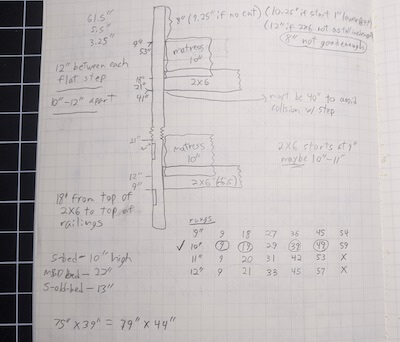 61.5"
5.5"
3.25"
8" (9.25" if no cat) (10.25" if start 1" lower
(12" if 2x6 not
(8" not good enough)
53"
matress
10"
12" between each
flat step
18"
21"
41"
2x6
10"-12" apart
must be 40" to avoid
collision w/ step
21"
matress
10"
2x6 starts at 9"
maybe 10"-11"
12"
9"
2x6 (5.5)
18" from top of
2x6 to top of
railings
rungs
9" 9 18 27 36 45 54
✓ 10" 9 19 29 39 49 59
11" 9 20 31 42 53 X
12" 9 21 33 45 57 X
S-bed - 10" high
bed - 22"
S-old-bed - 13"
75" x 39" = 79" x 44"